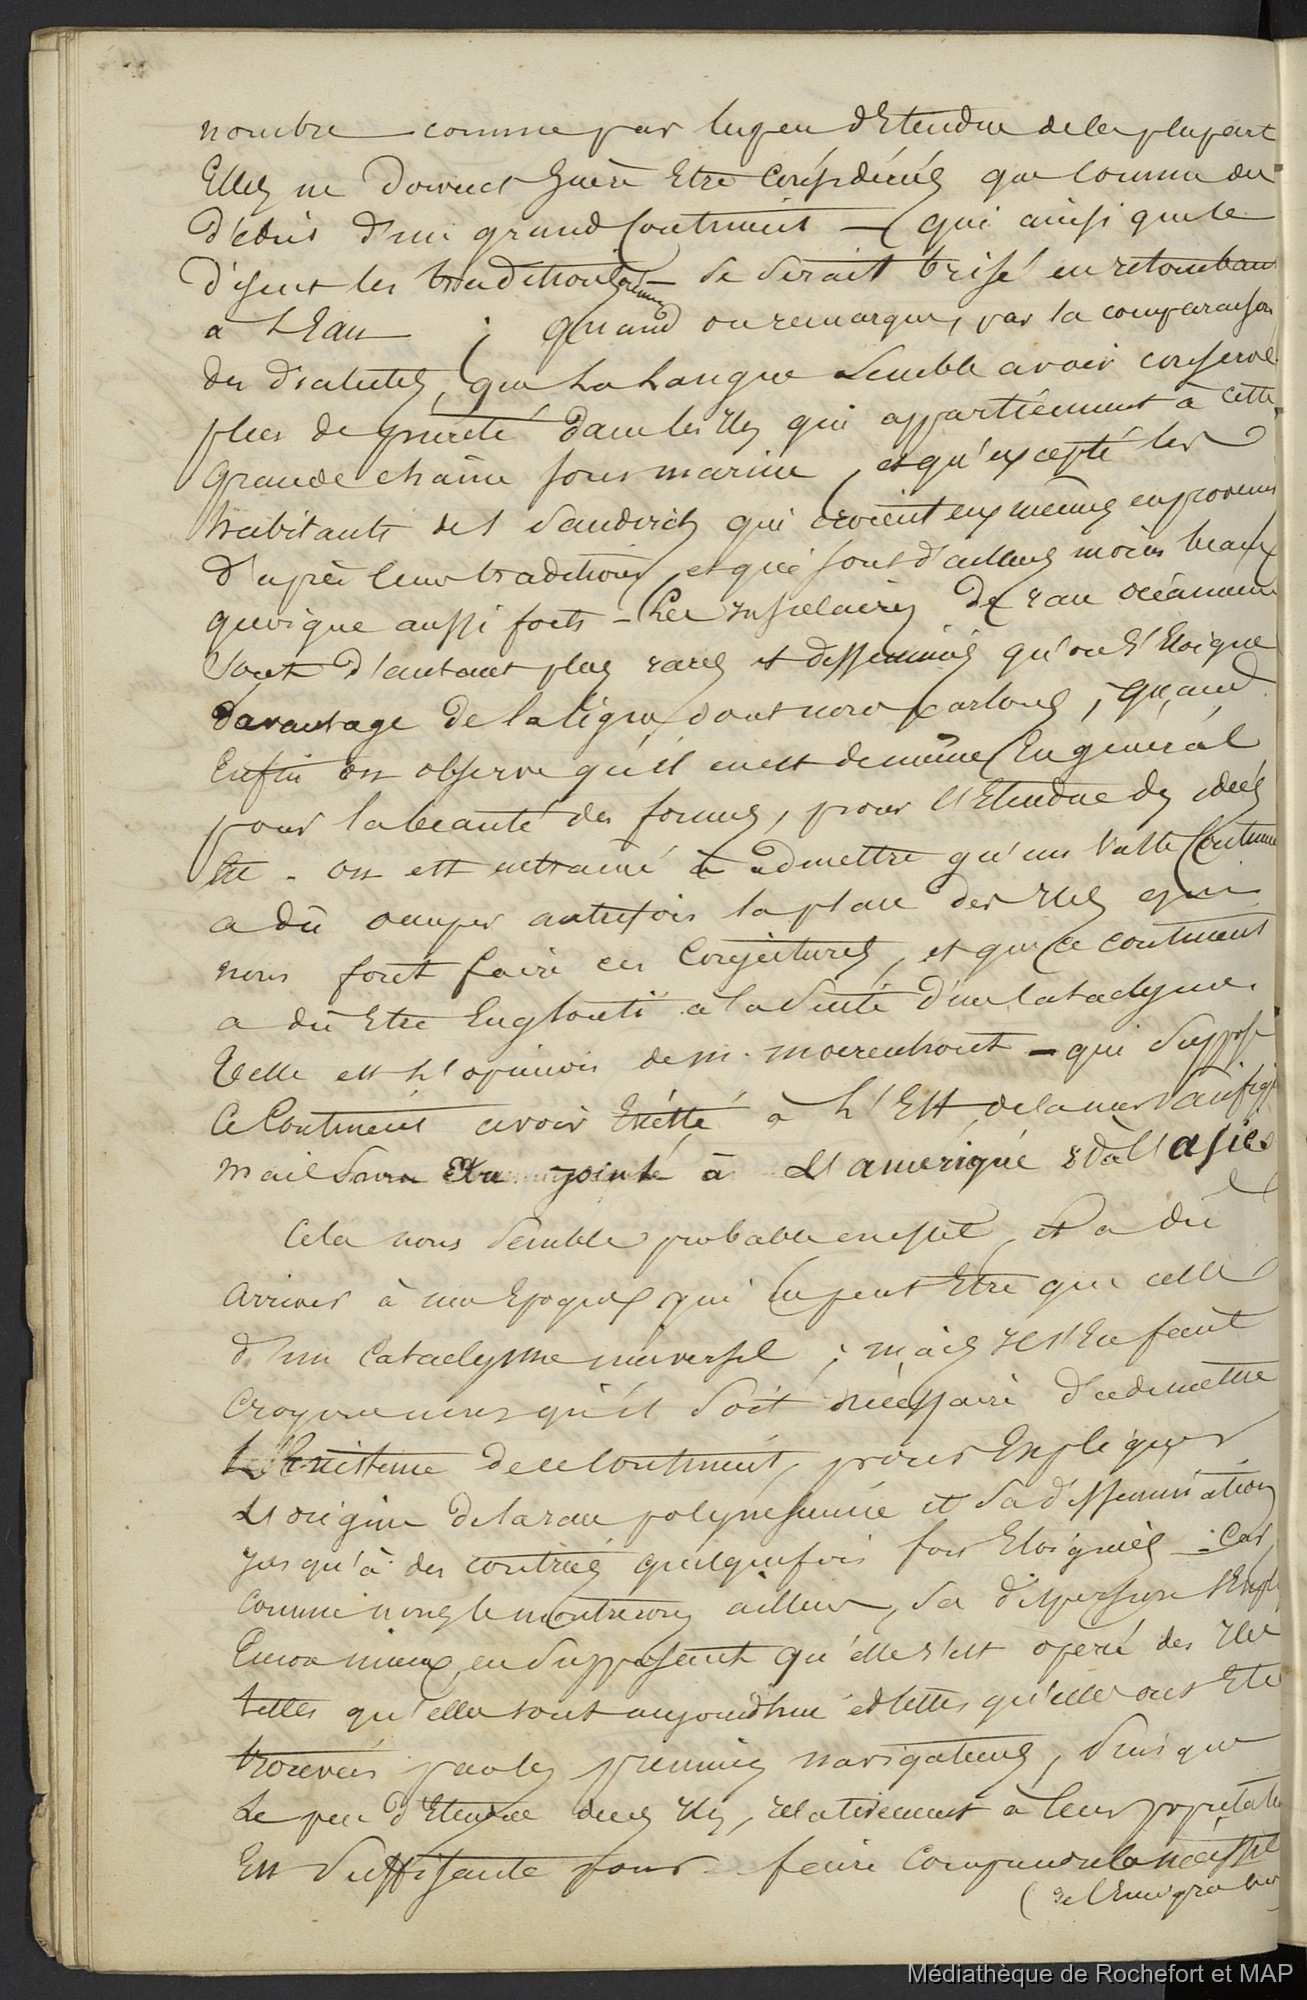 nombre comme par le peu d'Etendue de la plupart
Elles ne doivent guère Etre considérées que comme des
débris d'un grand Continent — qui ainsi que le
disent les traditions — se serait brisé en retombant
à l'Eau ; quand on remarque, par la comparaison
des dialectes, que la Langue semble avoir conservé
plus de pureté dans les Iles qui appartiennent à cette
grande chaîne sous marine, et qu'excepté les
habitants des Sandwich qui croient eux mêmes en provenir
d'après leurs traditions, et qui sont d'ailleurs moins beaux
quoique aussi forts - Les Insulaires de race océanienne
sont d'autant plus rares et disséminés qu'on s'Eloigne
davantage de la ligne dont nous parlons, quand
Enfin on observe qu'il en est de même En général
pour la beauté des formes, pour l'Etendue des idées
etc - on est entrainé à admettre qu'un vaste Continent
a dû occuper autrefois la place des Iles qui
nous font faire ces Conjectures, et que ce continent
a dû Etre Englouti à la suite d'un Cataclysme.
Telle est l'opinion de M. Moerenhout — qui suppose
ce Continent avoir Existé à l'Est de la mer Pacifique
mais sans Etre joint à l'amérique & à l'asie
Cela nous semble probable en effet, et a dû
arriver à une Epoque qui ne peut Etre que celle
d'un Cataclysme universel ; mais Il s'En faut
croyons nous qu'il soit nécessaire d'admettre
l'Existence de ce Continent, pour Expliquer
L'origine de la race polynésienne et sa dissémination
jusqu'à des contrées quelquefois fort Eloignées — Car,
comme nous le montrerons ailleurs, sa dispersion s'Expl
Encore mieux en supposant qu'elle s'est opérée des Iles
telles qu'elles sont aujourd'hui et telles qu'elles ont Eté
trouvées par les premiers navigateurs, puisque
Le peu d'Etendue des Iles, relativement à leur populat
Est suffisante pour faire comprendre la nécessité
(de l'Emigration
Médiathèque de Rochefort et MAP